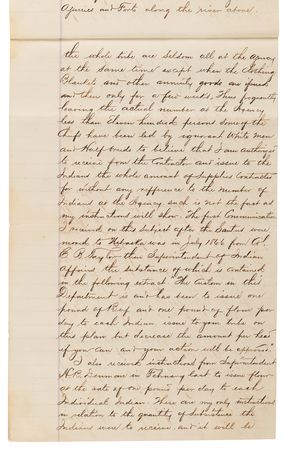 Agencies and Forts along the river above.
the whole tribe are seldom all at the Agency
at the same time except when the Clothing
Blankets and other annuity goods are issued
and then only for a few weeks. Thus frequently
leaving the actual number at the Agency
less than Eleven hundred persons. Some of the
Chiefs have been led by ignorant White men
and Half breeds to believe that I am authorized
to receive from the Contractor and issue to the
Indians the whole amount of Supplies Contracted
for without any refference to the number of
Indians at the Agency. such is not the fact as
my instructions will show. The first Communication
I received on this Subject after the Santees were
moved to Nebraska was in July 1866 from Col.
E. B. Taylor then Superintendent of Indian
Affairs the substance of which is contained
in the following extract. The Custom in this
Department is and has been to issue one
pound of Beef and one pound of flour per
day to each Indian issue to your tribe on
this plan but decrease the amount per head
if you can and your action will be approved."
I also received instructions from Superintendent
H. B. Denman in February last to issue flour
at the rate of one pound per day to each
Individual Indian. These are my only instructions
in relation to the quantity of subsistence the
Indians were to receive and it will be